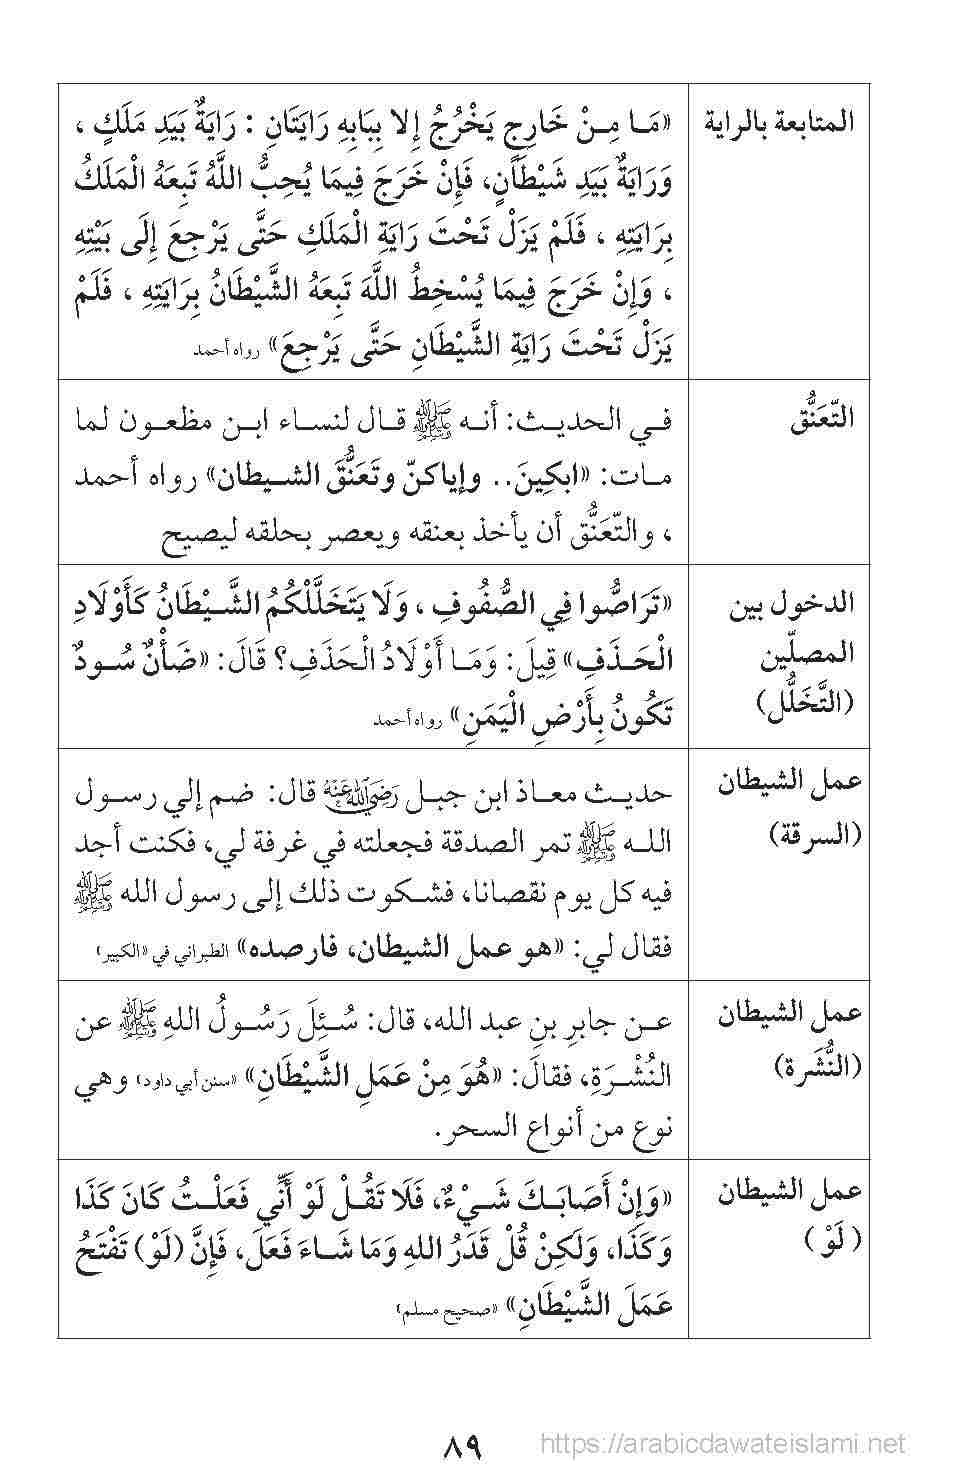 المتابعة بالراية
«مَا مِنْ خَارِجٍ يَخْرُجُ إِلا بِبَابِهِ رَايَتَانِ : رَايَةٌ بَيَدِ مَلَكٍ ،
وَرَايَةٌ بَيَدِ شَيْطَانٍ، فَإِنْ خَرَجَ فِيمَا يُحِبُّ اللَّهُ تَبِعَهُ الْمَلَكُ
بِرَايَتِهِ ، فَلَمْ يَزَلْ تَحْتَ رَايَةِ الْمَلَكِ حَتَّى يَرْجِعَ إِلَى بَيْتِهِ
، وَإِنْ خَرَجَ فِيمَا يُسْخِطُ اللَّهَ تَبِعَهُ الشَّيْطَانُ بِرَايَتِهِ ، فَلَمْ
يَزَلْ تَحْتَ رَايَةِ الشَّيْطَانِ حَتَّى يَرْجِعَ» رواه أحمد
التّعَنُّق
في الحديث: أنه ﷺ قال لنساء ابن مظعون لما
مات: «ابكِينَ.. وإياكنّ وتَعَنُّقَ الشيطان» رواه أحمد
، والتّعَنُّق أن يأخذ بعنقه ويعصر بحلقه ليصيح
الدخول بين
المصلّين
(التَّخَلُّل)
«تَرَاصُّوا فِي الصُّفُوفِ ، وَلَا يَتَخَلَّلْكُمُ الشَّيْطَانُ كَأَوْلَادِ
الْحَذَفِ» قِيلَ: وَمَا أَوْلَادُ الْحَذَفِ؟ قَالَ: «ضَأْنٌ سُودٌ
تَكُونُ بِأَرْضِ الْيَمَنِ» رواه أحمد
عمل الشيطان
(السرقة)
حديث معاذ ابن جبل رَضِيَ اللهُ عَنْهُ قال: ضم إلي رسول
الله ﷺ تمر الصدقة فجعلته في غرفة لي، فكنت أجد
فيه كل يوم نقصانا، فشكوت ذلك إلى رسول الله ﷺ
فقال لي: «هو عمل الشيطان، فارصده» الطبراني في «الكبير»
عمل الشيطان
(النُّشَرة)
عن جابرِ بنِ عبد الله، قال: سُئِلَ رَسُولُ اللهِ ﷺ عن
النُشْرَةِ، فقالَ: «هُوَ مِنْ عَمَلِ الشَّيْطَانِ» «سنن أبي داود» وهي
نوع من أنواع السحر.
عمل الشيطان
( لَوْ )
«وَإِنْ أَصَابَكَ شَيْءٌ، فَلَا تَقُلْ لَوْ أَنِّي فَعَلْتُ كَانَ كَذَا
وَكَذَا، وَلَكِنْ قُلْ قَدَرُ اللهِ وَمَا شَاءَ فَعَلَ، فَإِنَّ (لَوْ) تَفْتَحُ
عَمَلَ الشَّيْطَانِ» «صحيح مسلم»
٨٩
https://arabicdawateislami.net